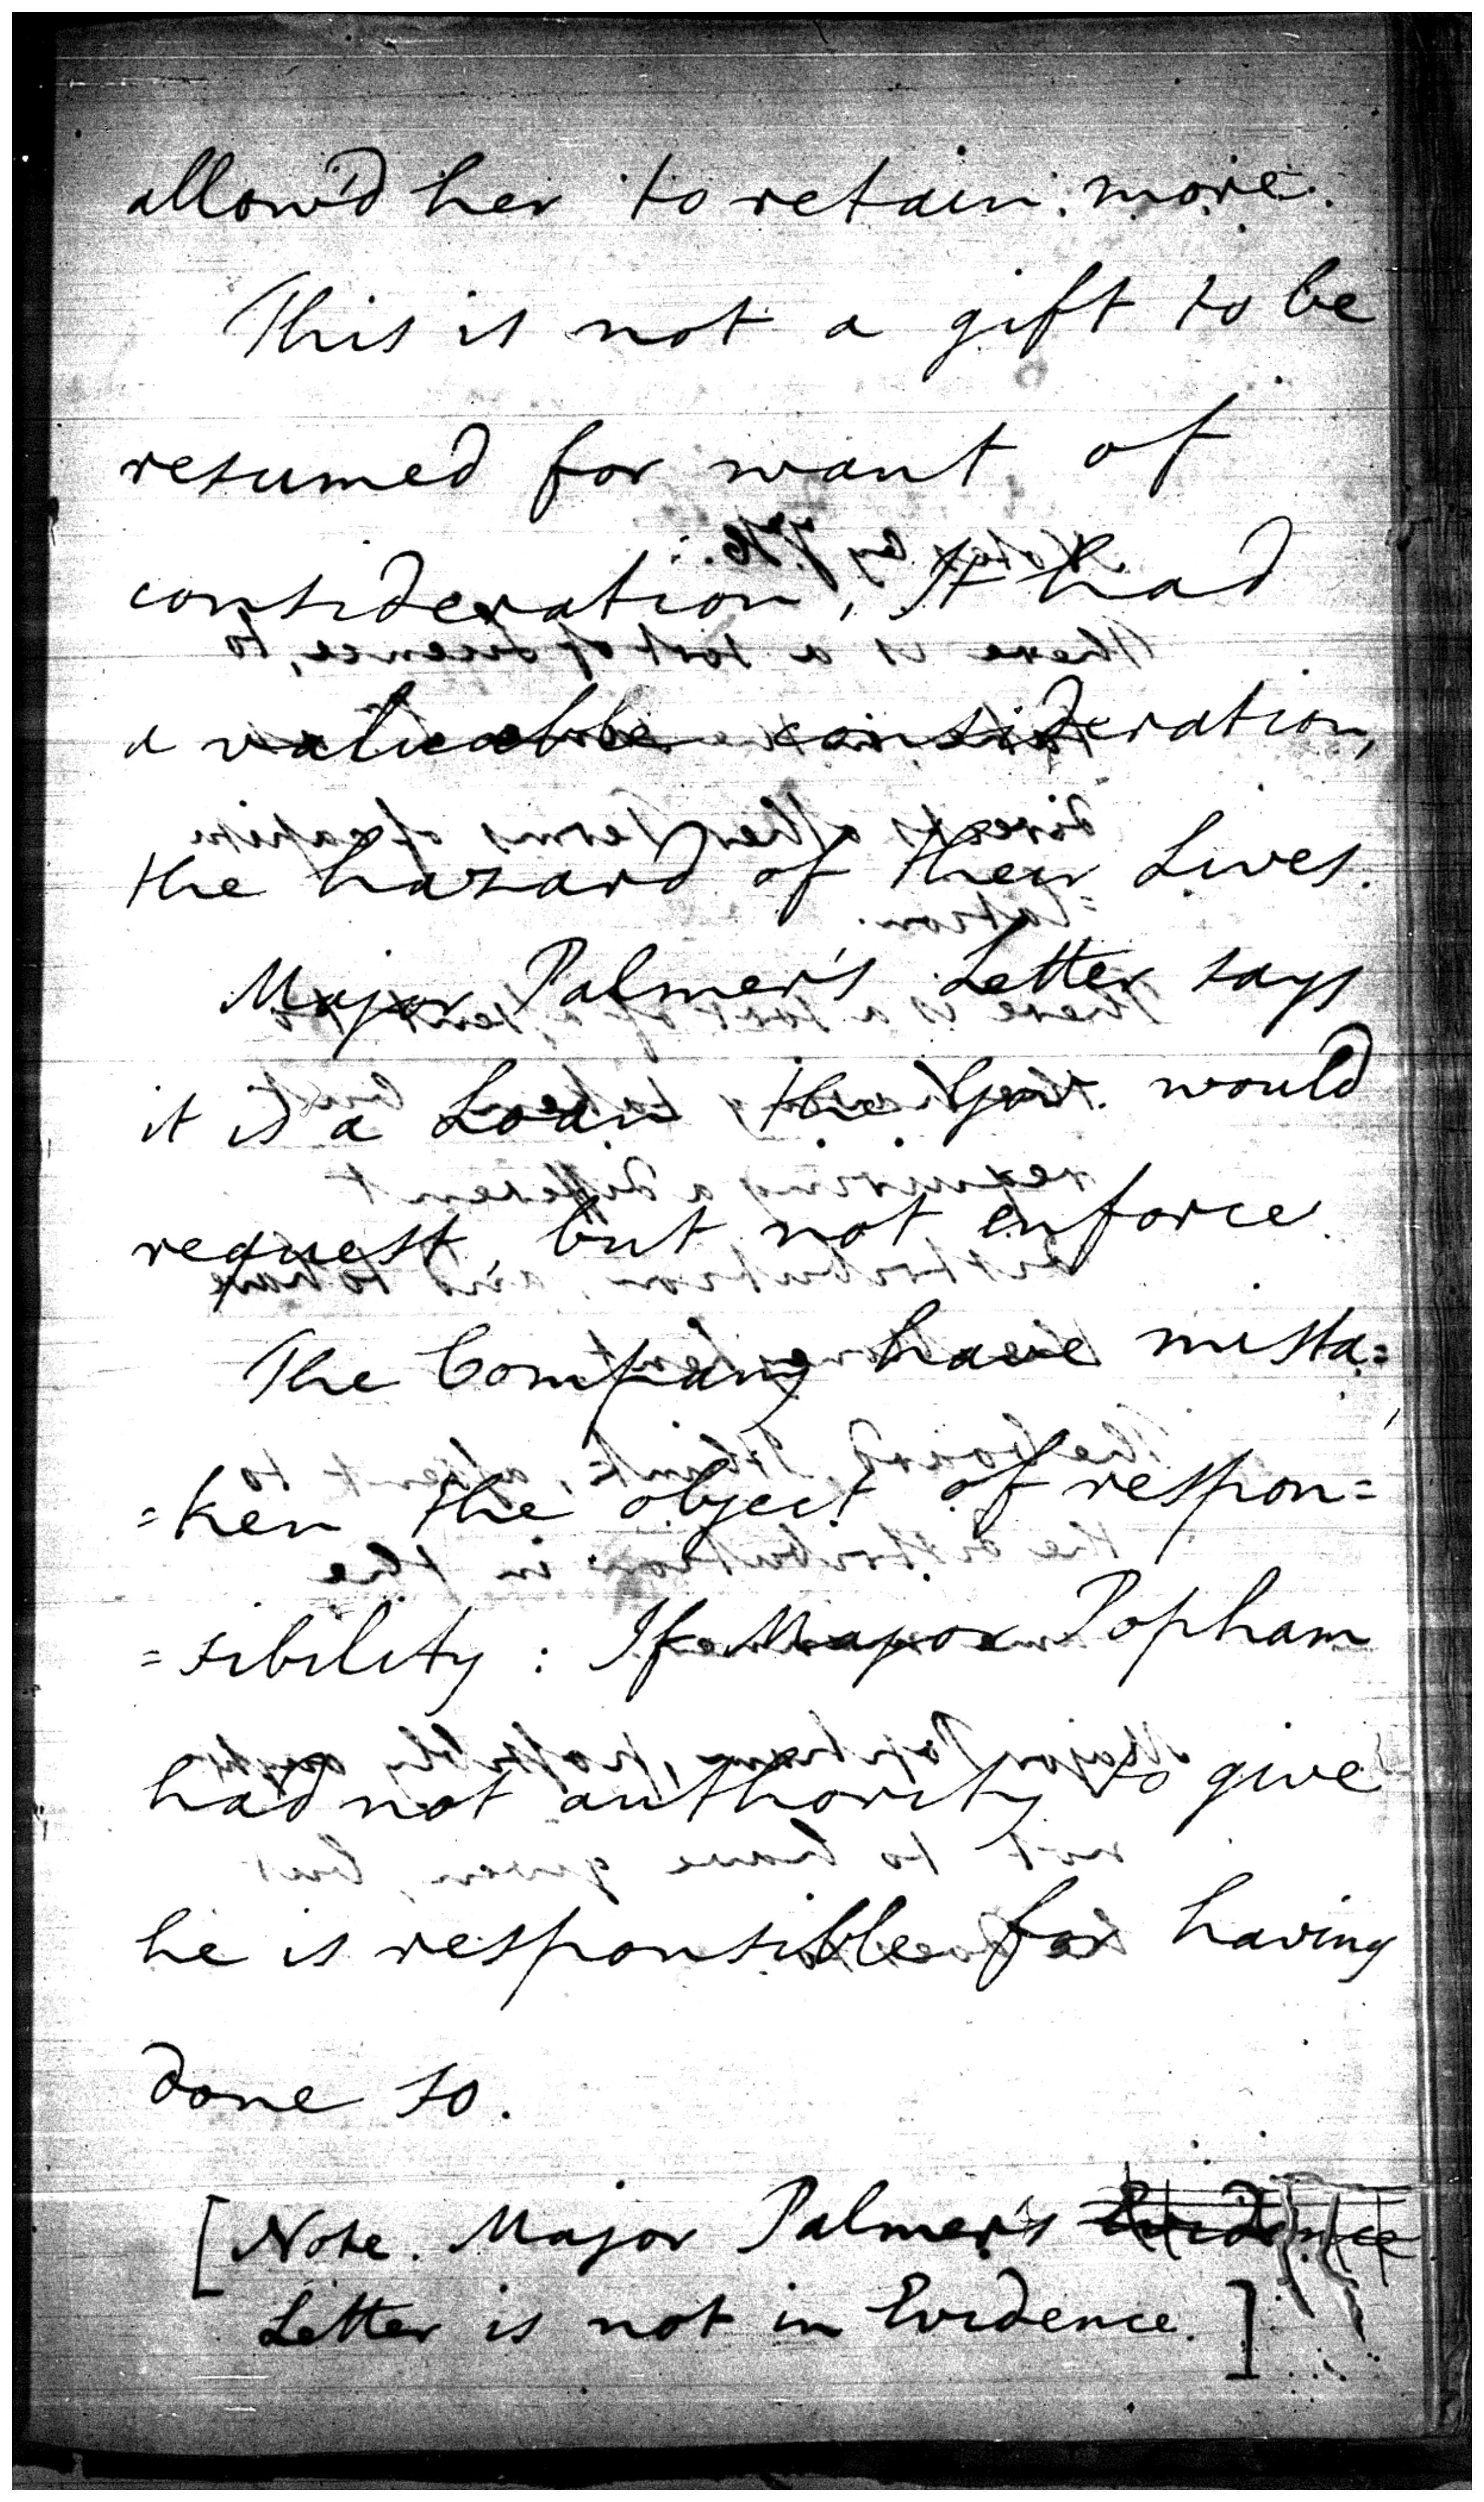 allow'd her to retain more.
This is not a gift to be
resumed for want of
consideration, It had
a valuable consideration,
the hazard of their Lives.
Major Palmer's Letter says
it is a Loan the Gov.r would
request, but not enforce.
The Company have mista=
=ken the object of respon=
=sibility : If Major Popham
had not authority to give
he is responsible for having
done so.
[Note. Major Palmer's Evidence
Letter is not in Evidence.]